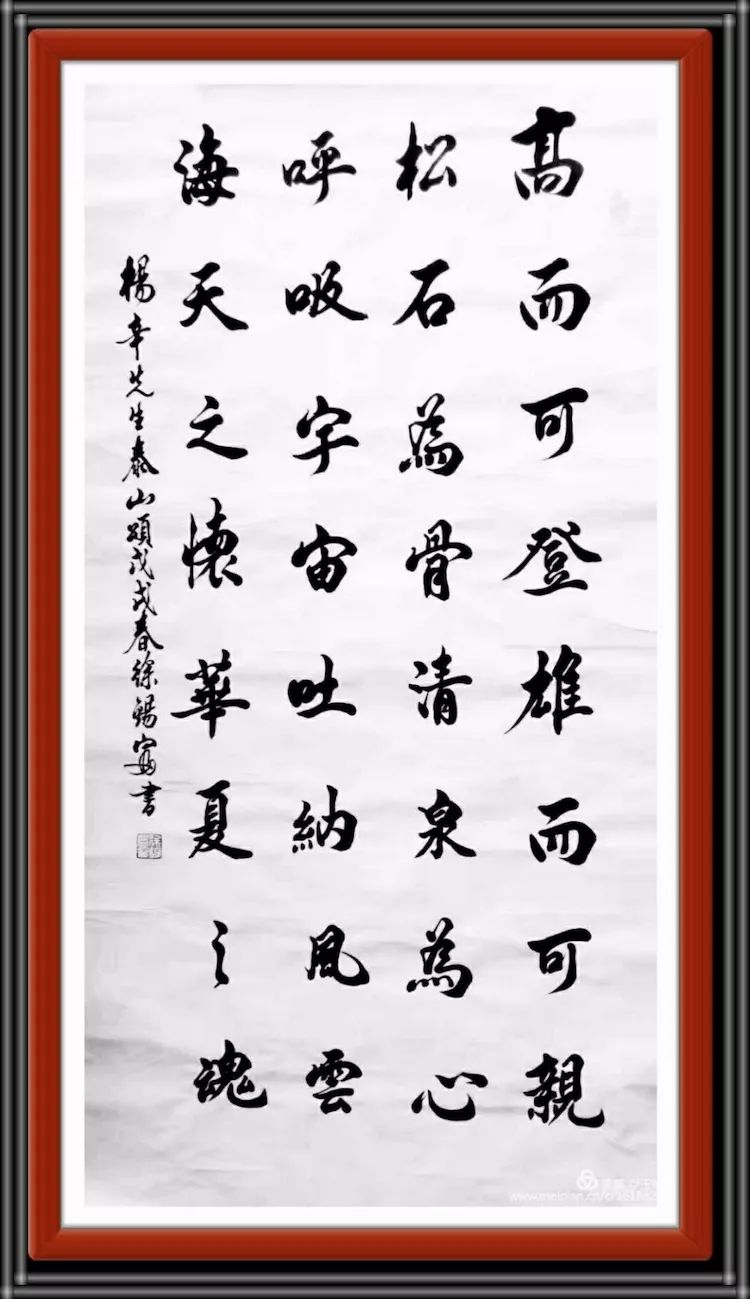 高而可登雄而可親
松石為骨清泉為心
呼吸宇宙吐納風雲
海天之懷華夏之魂
楊辛先生泰山頌戊戌春徐錫寧書